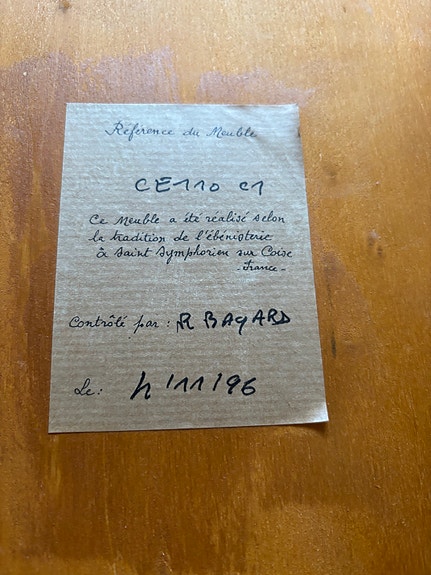 Référence du Meuble
CE110 C1
Ce Meuble a été réalisé selon
la tradition de l'ébénisterie
à Saint Symphorien sur Coise
- France -
Contrôlé par : R BAGARD
Le : 4/11/96